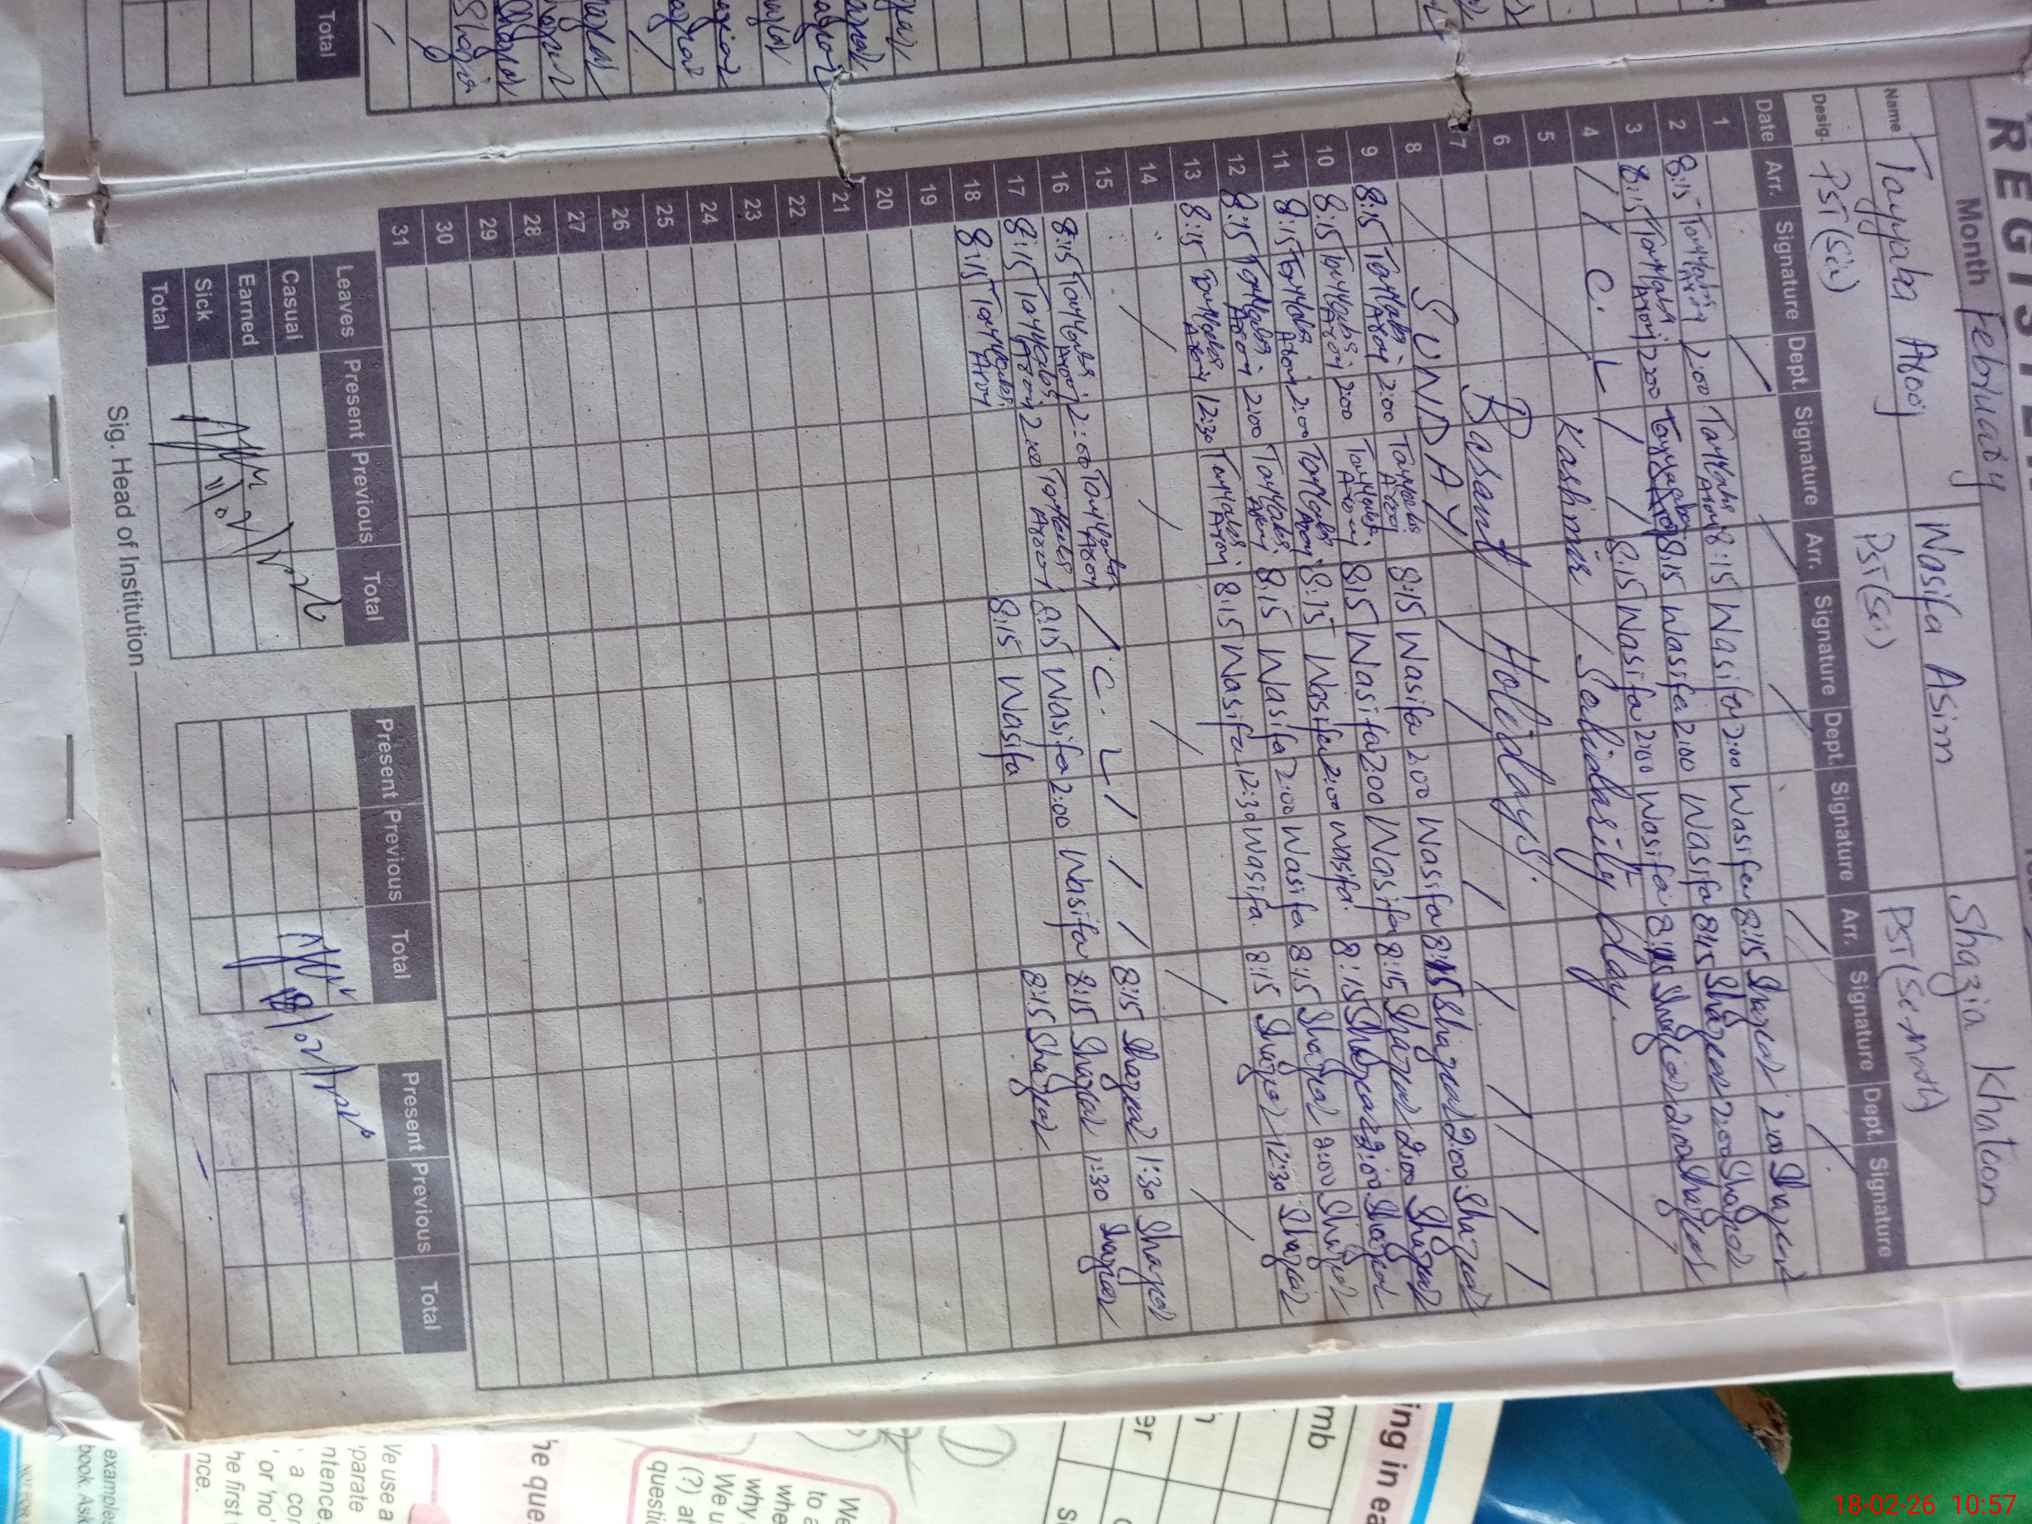 REGISTER
Month February
Name Tayyaba Arooj Wasifa Asim Shazia Khatoon
Desig. PST (Sci) PST (Sci) PST (Sc-math)
Date Arr. Signature Dept. Signature Arr. Signature Dept. Signature Arr. Signature Dept. Signature
1
2 8:15 Tayyaba Arooj 2:00 Tayyaba Arooj 8:15 Wasifa 2:00 Wasifa 8:15 Shazia 2:00 Shazia
3 8:15 Tayyaba Arooj 2:00 Tayyaba Arooj 8:15 Wasifa 2:00 Wasifa 8:15 Shazia 2:00 Shazia
4 / / C. L / / 8:15 Wasifa 2:00 Wasifa 8:15 Shazia 2:00 Shazia
5 Kashmir Solidarity day.
6 Basant Holidays.
7
8 SUNDAY
9 8:15 Tayyaba Arooj 2:00 Tayyaba Arooj 8:15 Wasifa 2:00 Wasifa 8:15 Shazia 2:00 Shazia
10 8:15 Tayyaba Arooj 2:00 Tayyaba Arooj 8:15 Wasifa 2:00 Wasifa 8:15 Shazia 2:00 Shazia
11 8:15 Tayyaba Arooj 2:00 Tayyaba Arooj 8:15 Wasifa 2:00 Wasifa 8:15 Shazia 2:00 Shazia
12 8:15 Tayyaba Arooj 2:00 Tayyaba Arooj 8:15 Wasifa 2:00 Wasifa 8:15 Shazia 2:00 Shazia
13 8:15 Tayyaba Arooj 12:30 Tayyaba Arooj 8:15 Wasifa 12:30 Wasifa 8:15 Shazia 12:30 Shazia
14
15
16 8:15 Tayyaba Arooj 2:00 Tayyaba Arooj / C. L / / / 8:15 Shazia 1:30 Shazia
17 8:15 Tayyaba Arooj 2:00 Tayyaba Arooj 8:15 Wasifa 2:00 Wasifa 8:15 Shazia 1:30 Shazia
18 8:15 Tayyaba Arooj 8:15 Wasifa 8:15 Shazia
19
20
21
22
23
24
25
26
27
28
29
30
31
Leaves Present Previous Total Present Previous Total Present Previous Total
Casual
Earned
Sick
Total
Sig. Head of Institution
Total
Shazia
ing in ea
mb
er
he que
We use a
parate
ntence.
a co
or 'no'
he first
nce.
examples
book. Ask
NOT FOR
We
to a
whe
why
We u
(?) at
questi
18-02-26 10:57